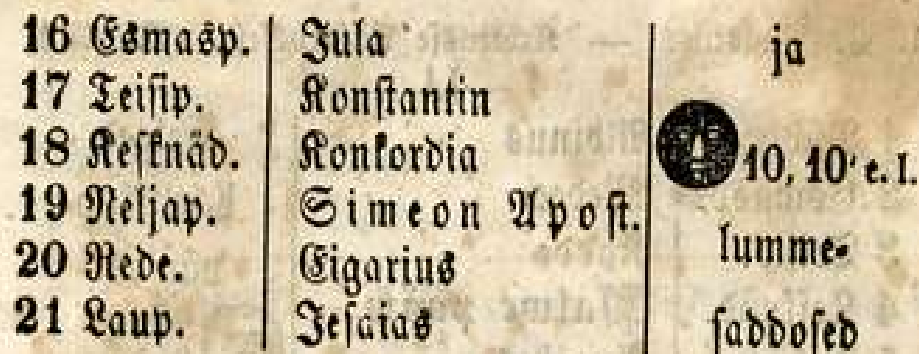 16 Esmasp. Jula ja
17 Teisip. Konstantin
18 Keſknäd. Konkordia 10, 10' e. l.
19 Neljap. Simeon Apost.
20 Rede. Eigarius lumme-
21 Laup. Jesaias saddosed